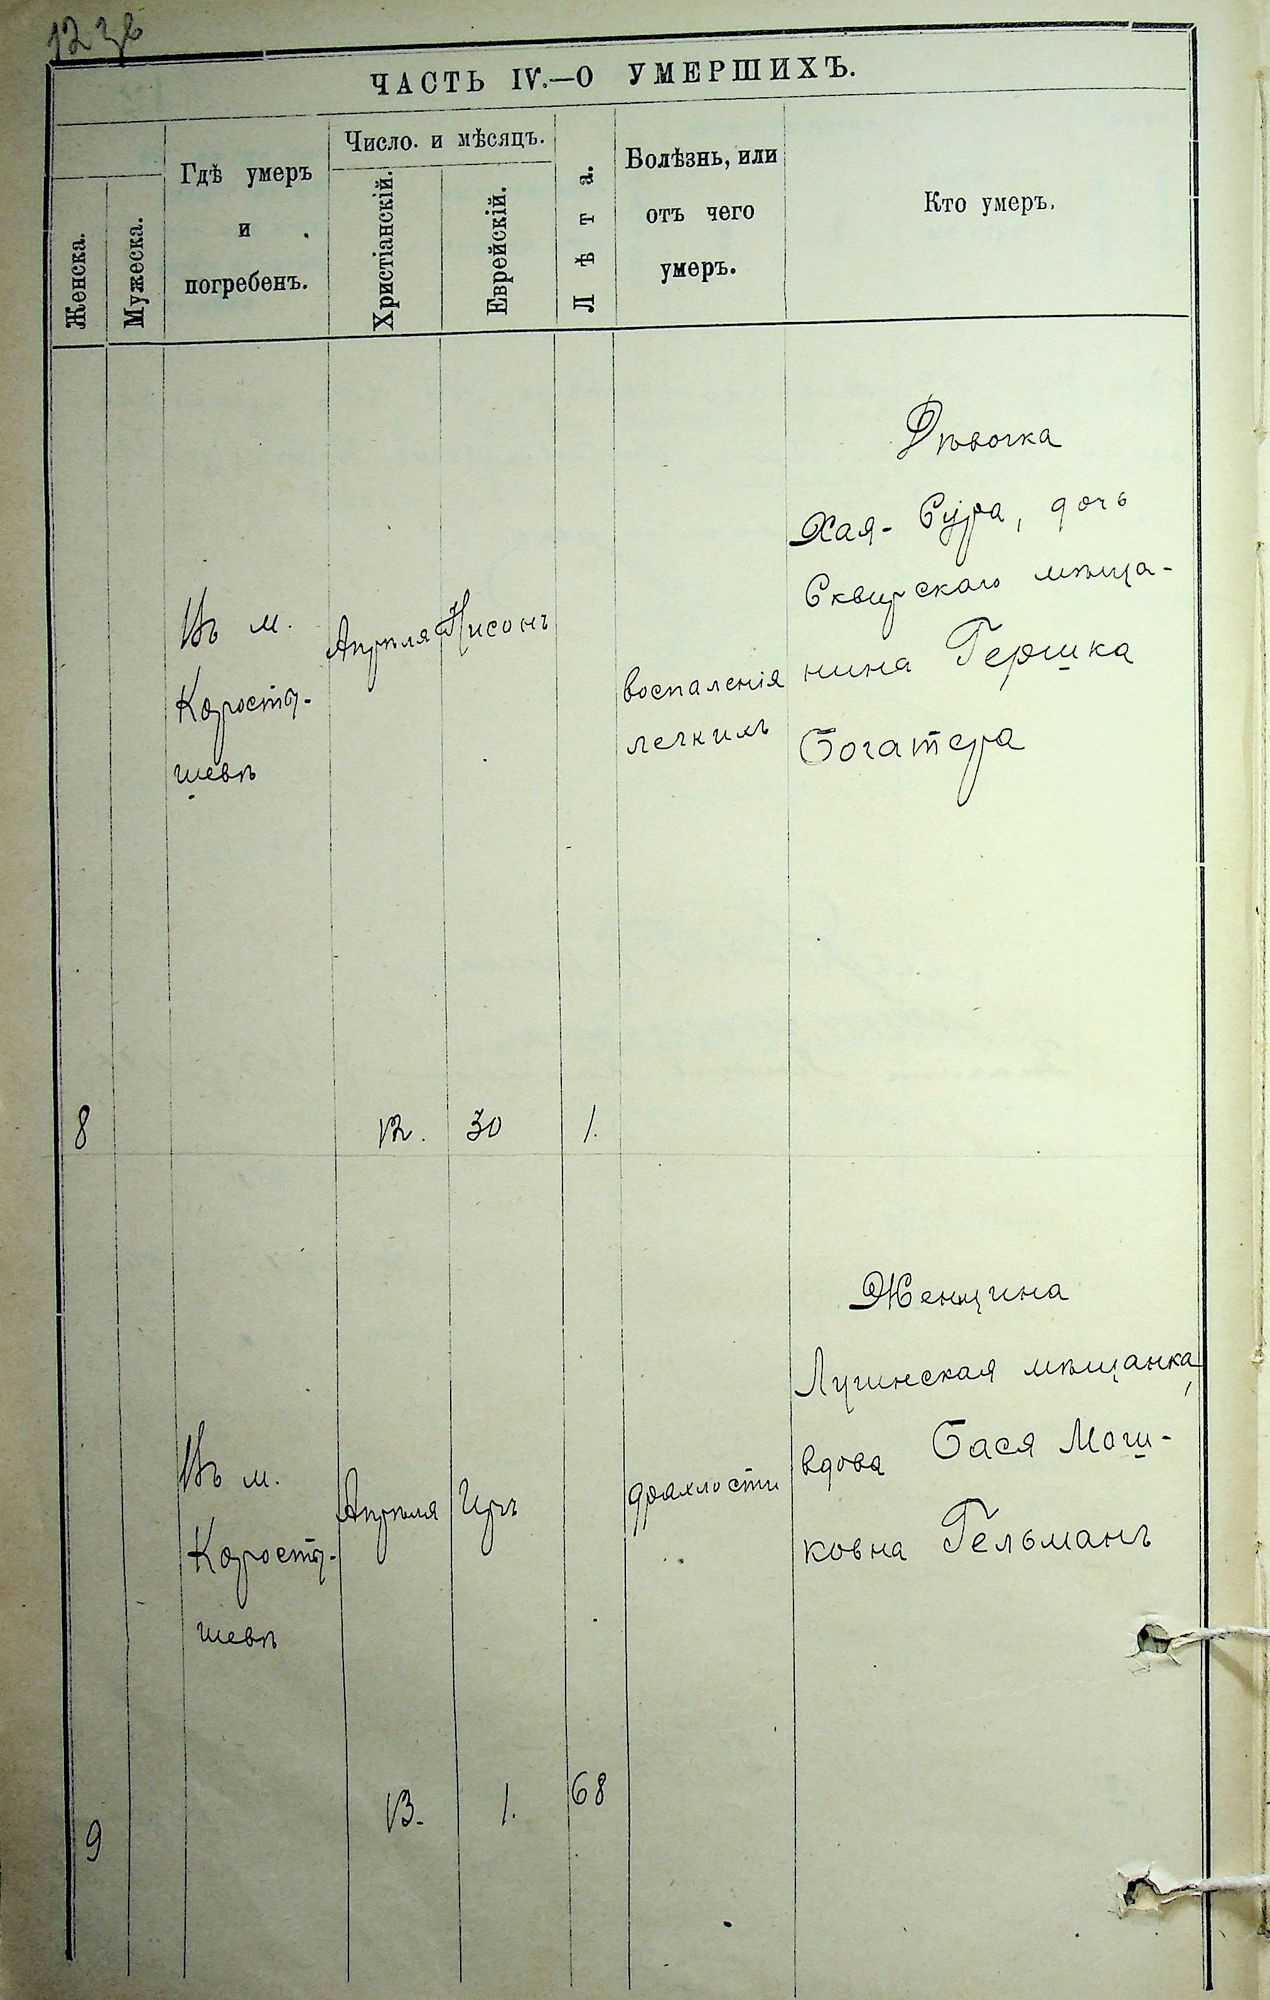 12 зв
ЧАСТЬ IV.—О УМЕРШИХЪ.
Женска.
Мужеска.
Гдѣ умеръ
и
погребенъ.
Число. и мѣсяцъ.
Христіанскій.
Еврейскій.
Лѣта.
Болѣзнь, или
отъ чего
умеръ.
Кто умеръ.
8
Въ м.
Корости-
шевѣ
Апрѣля
12.
Нисонъ
30
1.
воспаленія
легкихъ
Дѣвочка
Хая-Сура, дочь
Сквирскаго мѣща-
нина Гершка
Богатера
9
Въ м.
Корости-
шевѣ
Апрѣля
13.
Иръ
1.
68
драхлости
Женщина
Лугинская мѣщанка,
вдова Бася Мош-
ковна Гельманъ